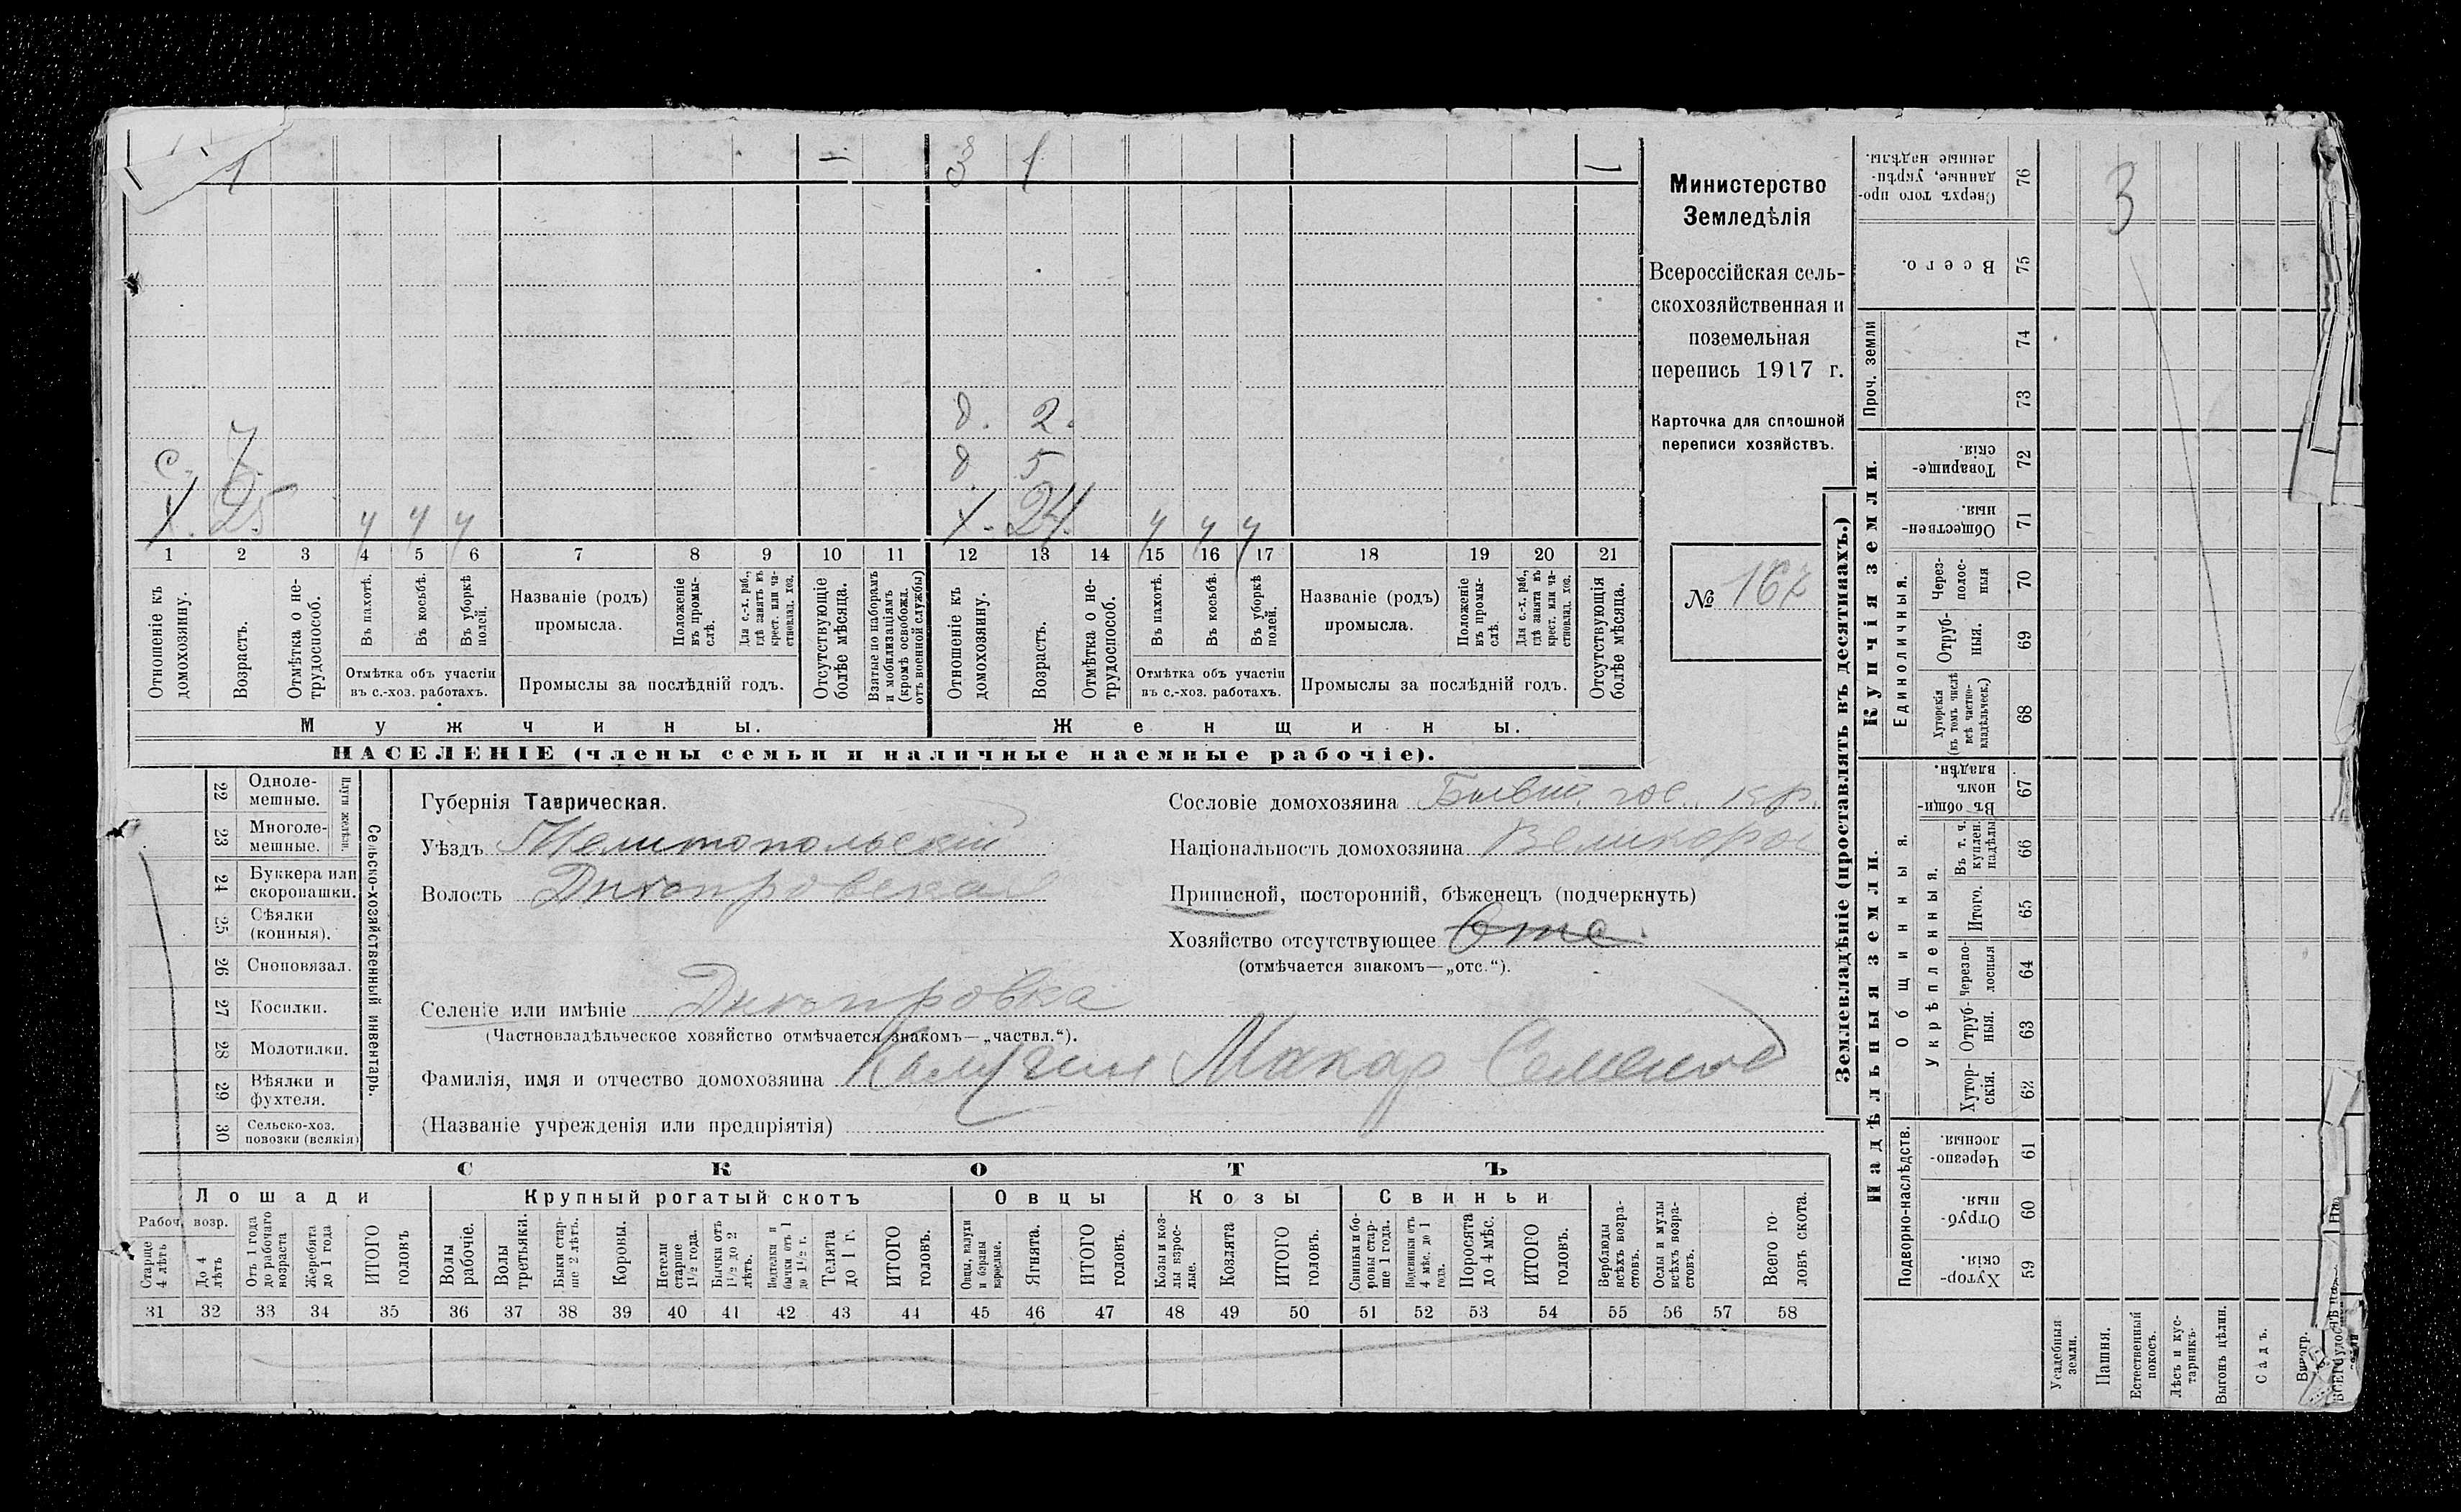 1 — 3 1 —
д. 2.
с. 7. д. 5
Х. 25 у у у Х. 24. у у у
1 2 3 4 5 6 7 8 9 10 11 12 13 14 15 16 17 18 19 20 21
Отношеніе къ домохозяину.
Возрастъ.
Отмѣтка о не-трудоспособ.
Въ пахотѣ.
Въ косьбѣ.
Въ уборкѣ полей.
Отмѣтка объ участіи въ с.-хоз. работахъ.
Названіе (родъ) промысла.
Положеніе въ промы-слѣ.
Для с.-х. раб., гдѣ занятъ въ крест. или ча-стновлад. хоз.
Промыслы за послѣдній годъ.
Отсутствующіе болѣе мѣсяца.
Взятые по наборамъ и мобилизаціямъ (кромѣ освобожд. отъ военной службы)
Отношеніе къ домохозяину.
Возрастъ.
Отмѣтка о не-трудоспособ.
Въ пахотѣ.
Въ косьбѣ.
Въ уборкѣ полей.
Отмѣтка объ участіи въ с.-хоз. работахъ.
Названіе (родъ) промысла.
Положеніе въ промы-слѣ.
Для с.-х. раб., гдѣ занята въ крест. или ча-стновлад. хоз.
Промыслы за послѣдній годъ.
Отсутствующія болѣе мѣсяца.
Мужчины. Женщины.
НАСЕЛЕНІЕ (члены семьи и наличные наемные рабочіе).
Министерство
Земледѣлія
Всероссійская сель-
скохозяйственная и
поземельная
перепись 1917 г.
Карточка для сплошной
переписи хозяйствъ.
№ 167
Сельско-хозяйственный инвентарь.
Плуги желѣзн.
22 Одноле-мешные.
23 Многоле-мешные.
24 Буккера или скоропашки.
25 Сѣялки (конныя).
26 Сноповязал.
27 Косилки.
28 Молотилки.
29 Вѣялки и фухтеля.
30 Сельско-хоз. повозки (всякія)
Губернія Таврическая.
Уѣздъ Мелитопольскій
Волость Днепровская
Селеніе или имѣніе Днепровка
(Частновладѣльческое хозяйство отмѣчается знакомъ—„частвл.“).
Фамилія, имя и отчество домохозяина Калугин Макар Семенов
(Названіе учрежденія или предпріятія)
Сословіе домохозяина Бывш. гос. кр.
Національность домохозяина Великорос
Приписной, посторонній, бѣженецъ (подчеркнуть)
Хозяйство отсутствующее Отс.
(отмѣчается знакомъ—„отс.“).
СКОТЪ
Лошади Крупный рогатый скотъ Овцы Козы Свиньи
Рабоч. возр.
Старше 4 лѣтъ
До 4 лѣтъ
Отъ 1 года до рабочаго возраста
Жеребята до 1 года
ИТОГО головъ
Волы рабочіе.
Волы третьяки.
Быки стар-ше 2 лѣтъ.
Коровы.
Нетели старше 1½ года.
Бычки отъ 1½ до 2 лѣтъ.
Подтелки и бычки отъ 1 до 1½ г.
Телята до 1 г.
ИТОГО головъ.
Овцы, валухи и бараны взрослые.
Ягнята.
ИТОГО головъ.
Козы и коз-лы взрос-лые.
Козлята
ИТОГО головъ.
Свиньи и бо-ровы стар-ше 1 года.
Подсвинки отъ 4 мѣс. до 1 года.
Поросята до 4 мѣс.
ИТОГО головъ.
Верблюды всѣхъ возра-стовъ.
Ослы и мулы всѣхъ возра-стовъ.
Всего го-ловъ скота.
31 32 33 34 35 36 37 38 39 40 41 42 43 44 45 46 47 48 49 50 51 52 53 54 55 56 57 58
Землевладѣніе (проставлять въ десятинахъ.)
Купчія земли.
Надѣльныя земли.
Сверхъ того про-данные, укрѣп-ленные надѣлы. 76 3
Всего. 75
Проч. земли 74
73
Товарище-скія 72
Обществен-ныя. 71
Единоличныя.
Через-полос-ныя 70
Отруб-ныя. 69
Хуторскія (въ томъ числѣ всѣ частно-владѣльческ.) 68
Общинныя.
Въ общин-номъ владѣн. 67
Укрѣпленныя.
Въ т. ч. куплен. надѣлы 66
Итого. 65
Черезпо-лосныя 64
Отруб-ныя. 63
Хутор-скія. 62
Подворно-наслѣдств.
Черезпо-лосныя. 61
Отруб-ныя. 60
Хутор-скія. 59
Усадебныя земли.
Пашня.
Естественный покосъ.
Лѣсъ и кус-тарникъ.
Выгонъ цѣлин.
Садъ.
Виногр.